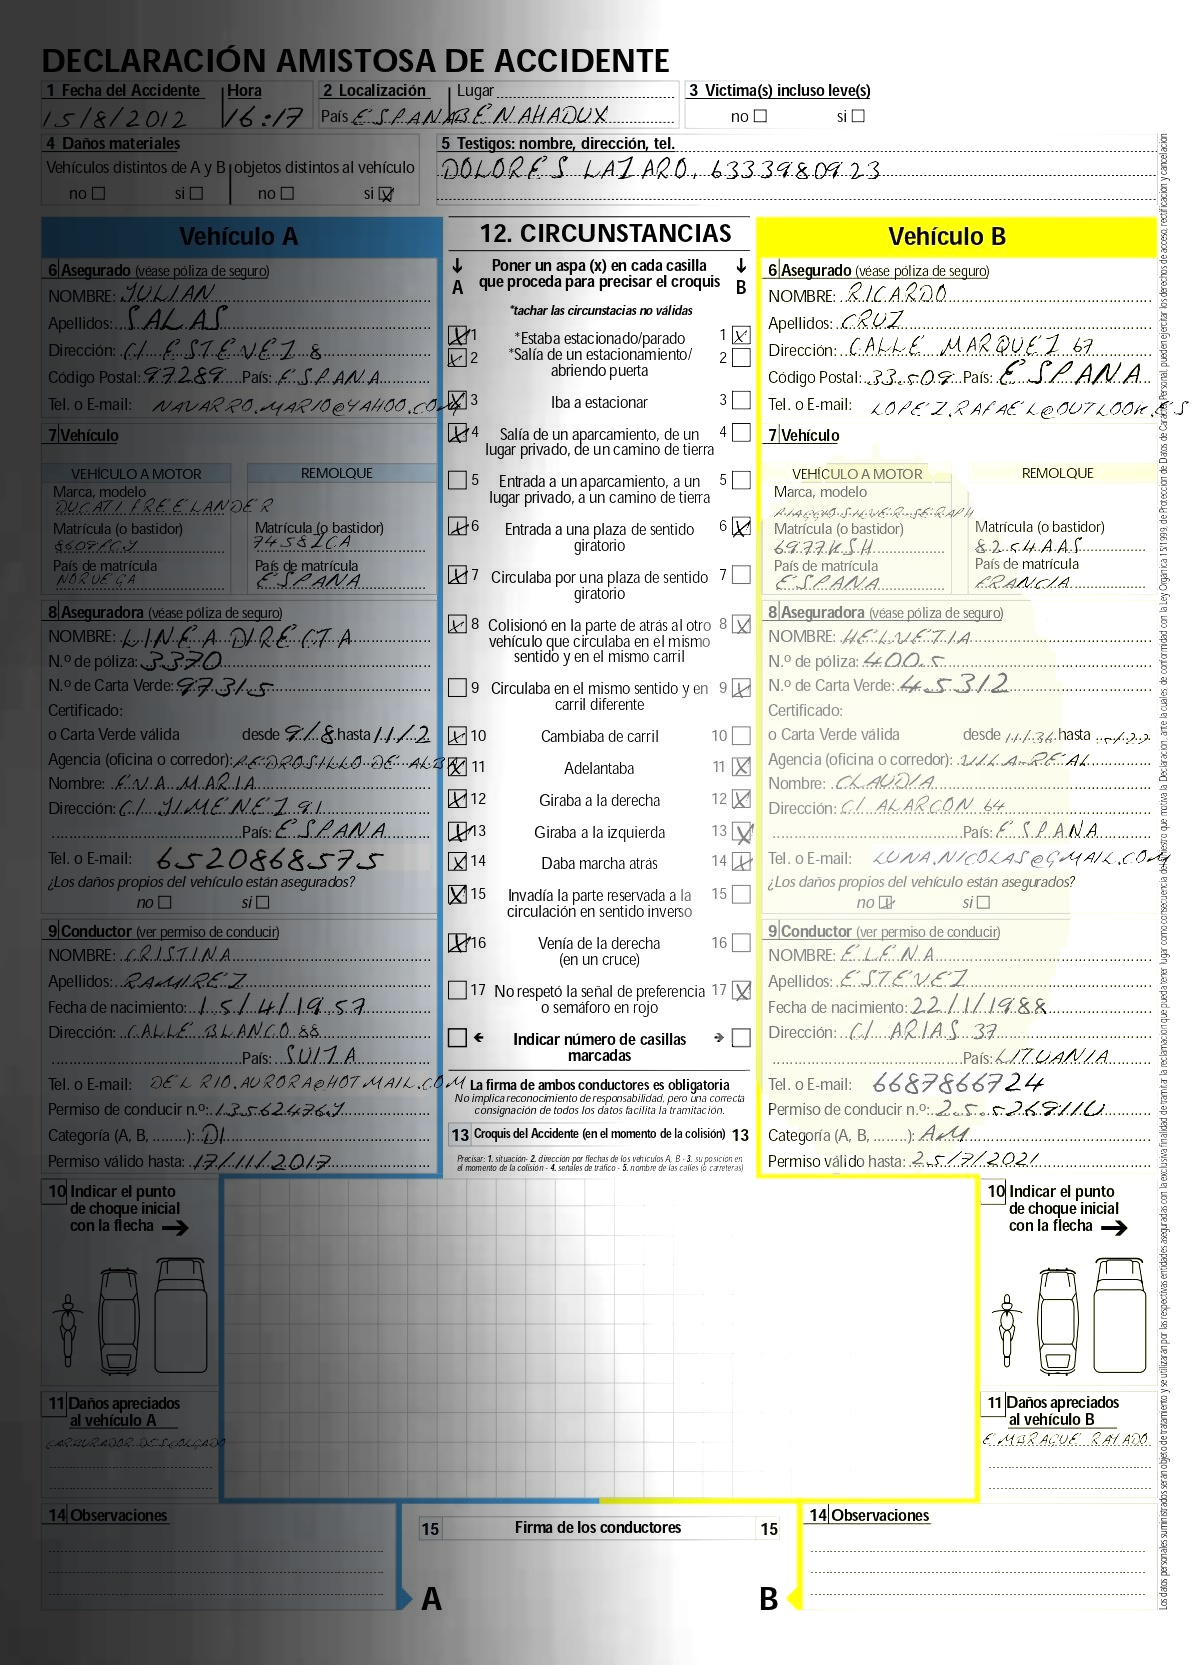 DECLARACIÓN AMISTOSA DE ACCIDENTE
1 Fecha del Accidente Hora 2 Localización Lugar 3 Victima(s) incluso leve(s)
15/8/2012 16:17 País ESPANA BENAHADUX no si
4 Daños materiales
Vehículos distintos de A y B objetos distintos al vehículo
no si no si X
5 Testigos: nombre, dirección, tel.
DOLORES LAZARO, 6333980923
Vehículo A
6 Asegurado (véase póliza de seguro)
NOMBRE: JULIAN
Apellidos: SALAS
Dirección: C/ ESTEVEZ 8
Código Postal: 97289 País: ESPANA
Tel. o E-mail: NAVARRO.MARIO@YAHOO.COM
7 Vehículo
VEHÍCULO A MOTOR REMOLQUE
Marca, modelo
DUCATI FREELANDER
Matrícula (o bastidor) Matrícula (o bastidor)
8609PCY 7458ICA
País de matrícula País de matrícula
NORUEGA ESPANA
8 Aseguradora (véase póliza de seguro)
NOMBRE: LINEA DIRECTA
N.º de póliza: 3370
N.º de Carta Verde: 97315
Certificado:
o Carta Verde válida desde 9/8 hasta 11/2
Agencia (oficina o corredor):
Nombre: EVA MARIA
Dirección: C/ JIMENEZ 91
País: ESPANA
Tel. o E-mail: 6520868575
¿Los daños propios del vehículo están asegurados?
no si
9 Conductor (ver permiso de conducir)
NOMBRE: CRISTINA
Apellidos: RAMIREZ
Fecha de nacimiento: 15/4/1957
Dirección: CALLE BLANCO 88
País: SUIZA
Tel. o E-mail: DELRIO.AURORA@HOTMAIL.COM
Permiso de conducir n.º: 13562476J
Categoría (A, B, ........): D1
Permiso válido hasta: 17/11/2017
12. CIRCUNSTANCIAS
A Poner un aspa (x) en cada casilla que proceda para precisar el croquis B
*tachar las circunstacias no válidas
X 1 *Estaba estacionado/parado 1 X
X 2 *Salía de un estacionamiento/ abriendo puerta 2
X 3 Iba a estacionar 3
X 4 Salía de un aparcamiento, de un lugar privado, de un camino de tierra 4
5 Entrada a un aparcamiento, a un lugar privado, a un camino de tierra 5
X 6 Entrada a una plaza de sentido giratorio 6 X
X 7 Circulaba por una plaza de sentido giratorio 7
X 8 Colisionó en la parte de atrás al otro vehículo que circulaba en el mismo sentido y en el mismo carril 8 X
9 Circulaba en el mismo sentido y en carril diferente 9 X
X 10 Cambiaba de carril 10
X 11 Adelantaba 11 X
X 12 Giraba a la derecha 12 X
X 13 Giraba a la izquierda 13 X
X 14 Daba marcha atrás 14 X
X 15 Invadía la parte reservada a la circulación en sentido inverso 15
X 16 Venía de la derecha (en un cruce) 16
17 No respetó la señal de preferencia o semáforo en rojo 17 X
Indicar número de casillas marcadas
La firma de ambos conductores es obligatoria
No implica reconocimiento de responsabilidad, pero una correcta
consignación de todos los datos facilita la tramitación.
13 Croquis del Accidente (en el momento de la colisión) 13
Precisar: 1. situación- 2. dirección por flechas de los vehículos A, B - 3. su posición en
el momento de la colisión - 4. señales de tráfico - 5. nombre de las calles (o carreteras)
Vehículo B
6 Asegurado (véase póliza de seguro)
NOMBRE: RICARDO
Apellidos: CRUZ
Dirección: CALLE MARQUEZ 67
Código Postal: 33509 País: ESPANA
Tel. o E-mail: LOPEZ.RAFAEL@OUTLOOK.ES
7 Vehículo
VEHÍCULO A MOTOR REMOLQUE
Marca, modelo
PIAGGIO SILVER SERAPH
Matrícula (o bastidor) Matrícula (o bastidor)
6977KSH 8254AAS
País de matrícula País de matrícula
ESPANA FRANCIA
8 Aseguradora (véase póliza de seguro)
NOMBRE: HELVETIA
N.º de póliza: 4005
N.º de Carta Verde: 45312
Certificado:
o Carta Verde válida desde hasta
Agencia (oficina o corredor): VILA-REAL
Nombre: CLAUDIA
Dirección: C/ ALARCON 64
País: ESPANA
Tel. o E-mail: LUNA.NICOLAS@GMAIL.COM
¿Los daños propios del vehículo están asegurados?
no X si
9 Conductor (ver permiso de conducir)
NOMBRE: ELENA
Apellidos: ESTEVEZ
Fecha de nacimiento: 22/1/1988
Dirección: C/ ARIAS 37
País: LITUANIA
Tel. o E-mail: 6687866724
Permiso de conducir n.º: 25526911U
Categoría (A, B, ........): AM
Permiso válido hasta: 25/7/2021
10 Indicar el punto de choque inicial con la flecha
10 Indicar el punto de choque inicial con la flecha
11 Daños apreciados al vehículo A
CARBURADOR DESCOLGADO
11 Daños apreciados al vehículo B
EMBRAGUE RAYADO
14 Observaciones
15 Firma de los conductores 15
14 Observaciones
A B
Los datos personales suministrados seran objeto de tratamiento y se utilizaran por las respectivas entidades aseguradas con la exclusiva finalidad de tramitar la reclamación que pueda tener lugar como consecuencia del siniestro que motiva la Declaracion, ante la cuales, de conformidad con la Ley Organica 15/1999, de Protección de Datos de Carácter Personal, pueden ejercitar los derechos de acceso, rectificación y cancelación